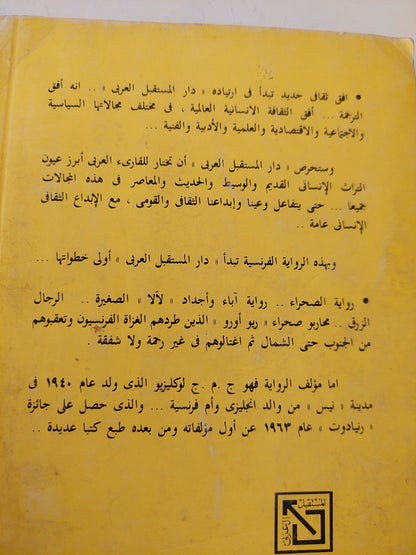 • افق ثقافى جديد تبدأ فى ارتياده « دار المستقبل العربى » .. انه أفق
الترجمة ... أفق الثقافة الانسانية العالمية ، فى مختلف مجالاتها السياسية
والاجتماعية والاقتصادية والعلمية والأدبية والفنية ...
وستحرص « دار المستقبل العربى » أن تختار للقارىء العربى أبرز عيون
التراث الإنسانى القديم والوسيط والحديث والمعاصر فى هذه المجالات
جميعا ... حتى يتفاعل وعينا وإبداعنا الثقافى والقومى ، مع الإبداع الثقافى
الإنسانى عامة ..
وبهذه الرواية الفرنسية تبدأ « دار المستقبل العربى » أولى خطواتها ...
• رواية الصحراء .. رواية آباء وأجداد « لآلا » الصغيرة .. الرجال
الزرق .. محاربو صحراء « ريو أورو » الذين طردهم الغزاة الفرنسيون وتعقبوهم
من الجنوب حتى الشمال ثم اغتالوهم فى غير رحمة ولا شفقة .
اما مؤلف الرواية فهو ج .م .ج لوكليزيو الذى ولد عام ١٩٤٠ فى
مدينة « نيس » من والد انجليزى وأم فرنسية ... والذى حصل على جائزة
« رنيادوت » عام ١٩٦٣ عن أول مؤلفاته ومن بعده طبع كتبا عديدة ..
المستقبل
العربى